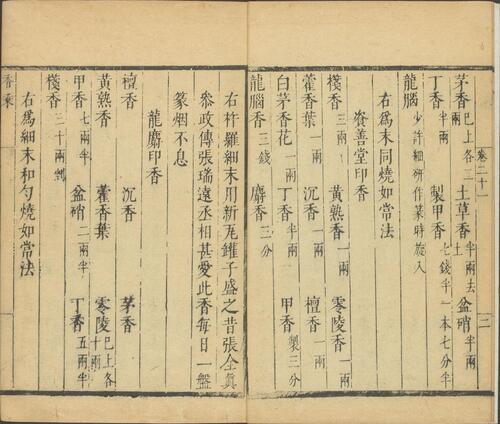 卷二十一
二
茅香已上各三兩 土草香半兩去土 盆硝半兩
丁香半兩 製甲香七錢半一本七分半
龍腦少許細研作篆時旋入
右爲細末同燒如常法
資善堂印香
棧香三兩 黃熟香一兩 零陵香一兩
藿香葉一兩 沉香一兩 檀香一兩
白茅香花一兩 丁香半兩 甲香製三分
龍腦香三錢 麝香三分
右杵羅細末用新瓦罐子盛之昔張全眞
叅政傳張瑞遠丞相甚愛此香每日一盤
篆烟不息
龍麝印香
檀香 沉香 茅香
黃熟香 藿香葉 零陵已上各十兩
甲香七兩半 盆硝二兩半 丁香五兩半
棧香三十兩剉
右爲細末和勻燒如常法
香乘